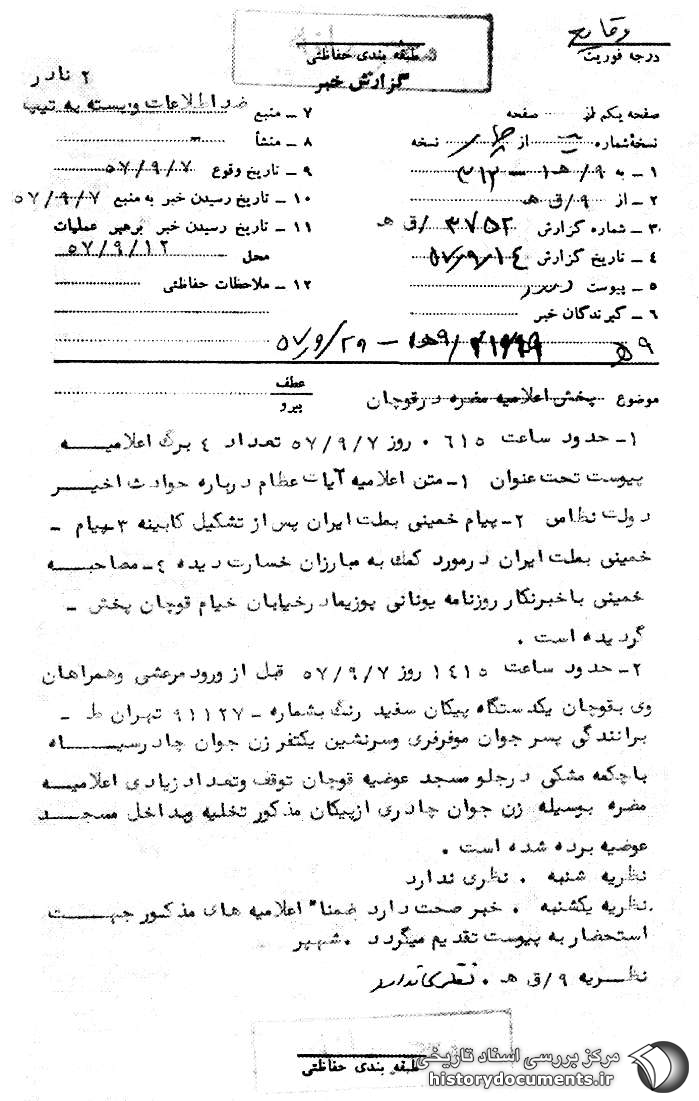 وقایع
درجه فوریت
طبقه بندی حفاظتی
گزارش خبر
۲ نادر
صفحه یکم از صفحه
نسخهٔ شماره از چهار نسخه
۱ ـ به ۹/هـ۱ ـ ۳۱۲
۲ ـ از ۹/ق هـ
۳ ـ شماره گزارش ۳۷۵۲/ق هـ
۴ ـ تاریخ گزارش ۵۷/۹/۱۴
۵ ـ پیوست دارد
۶ ـ گیرندگان خبر
۷ ـ منبع ضد اطلاعات وابسته به تیپ
۸ ـ منشأ -
۹ ـ تاریخ وقوع ۵۷/۹/۷
۱۰ ـ تاریخ رسیدن خبر به منبع ۵۷/۹/۷
۱۱ ـ تاریخ رسیدن خبر برهبر عملیات
محل ۵۷/۹/۱۲
۱۲ ـ ملاحظات حفاظتی
۵۷/۹/۲۹
عطف
پیرو
موضوع پخش اعلامیه مضره درقوچان
۱ـ حدود ساعت ۰۶۱۵ روز ۵۷/۹/۷ تعداد ۴ برگ اعلامیه
پیوست تحت عنوان ۱ـ متن اعلامیه آیات عظام درباره حوادث اخیر
دولت نظامی ۲ـ پیام خمینی بملت ایران پس از تشکیل کابینه ۳ـ پیام ـ
خمینی بملت ایران درمورد کمک به مبارزان خسارت دیده ۴ـ مصاحبه
خمینی باخبرنگار روزنامه یونانی پوزیما درخیابان خیام قوچان پخش ـ
گردیده است .
۲ـ حدود ساعت ۱۴۱۵ روز ۵۷/۹/۷ قبل از ورود مرعشی وهمراهان
وی بقوچان یکدستگاه پیکان سفید رنگ بشماره ـ ۹۱۱۲۷ تهران ط ـ
برانندگی پسر جوان موفرفری وسرنشین یکنفر زن جوان چادرسیاه
باچکمه مشکی درجلو مسجد عوضیه قوچان توقف وتعداد زیادی اعلامیه
مضره بوسیله زن جوان چادری ازپیکان مذکور تخلیه وبداخل مسجد
عوضیه برده شده است .
نظریه شنبه . نظری ندارد
نظریه یکشنبه . خبر صحت دارد ضمنا" اعلامیه های مذکور جهت
استحضار به پیوست تقدیم میگردد . شهپر
نظریه ۹/ق هـ . نظری ندارد
طبقه بندی حفاظتی
مرکز بررسی اسناد تاریخی
historydocuments.ir